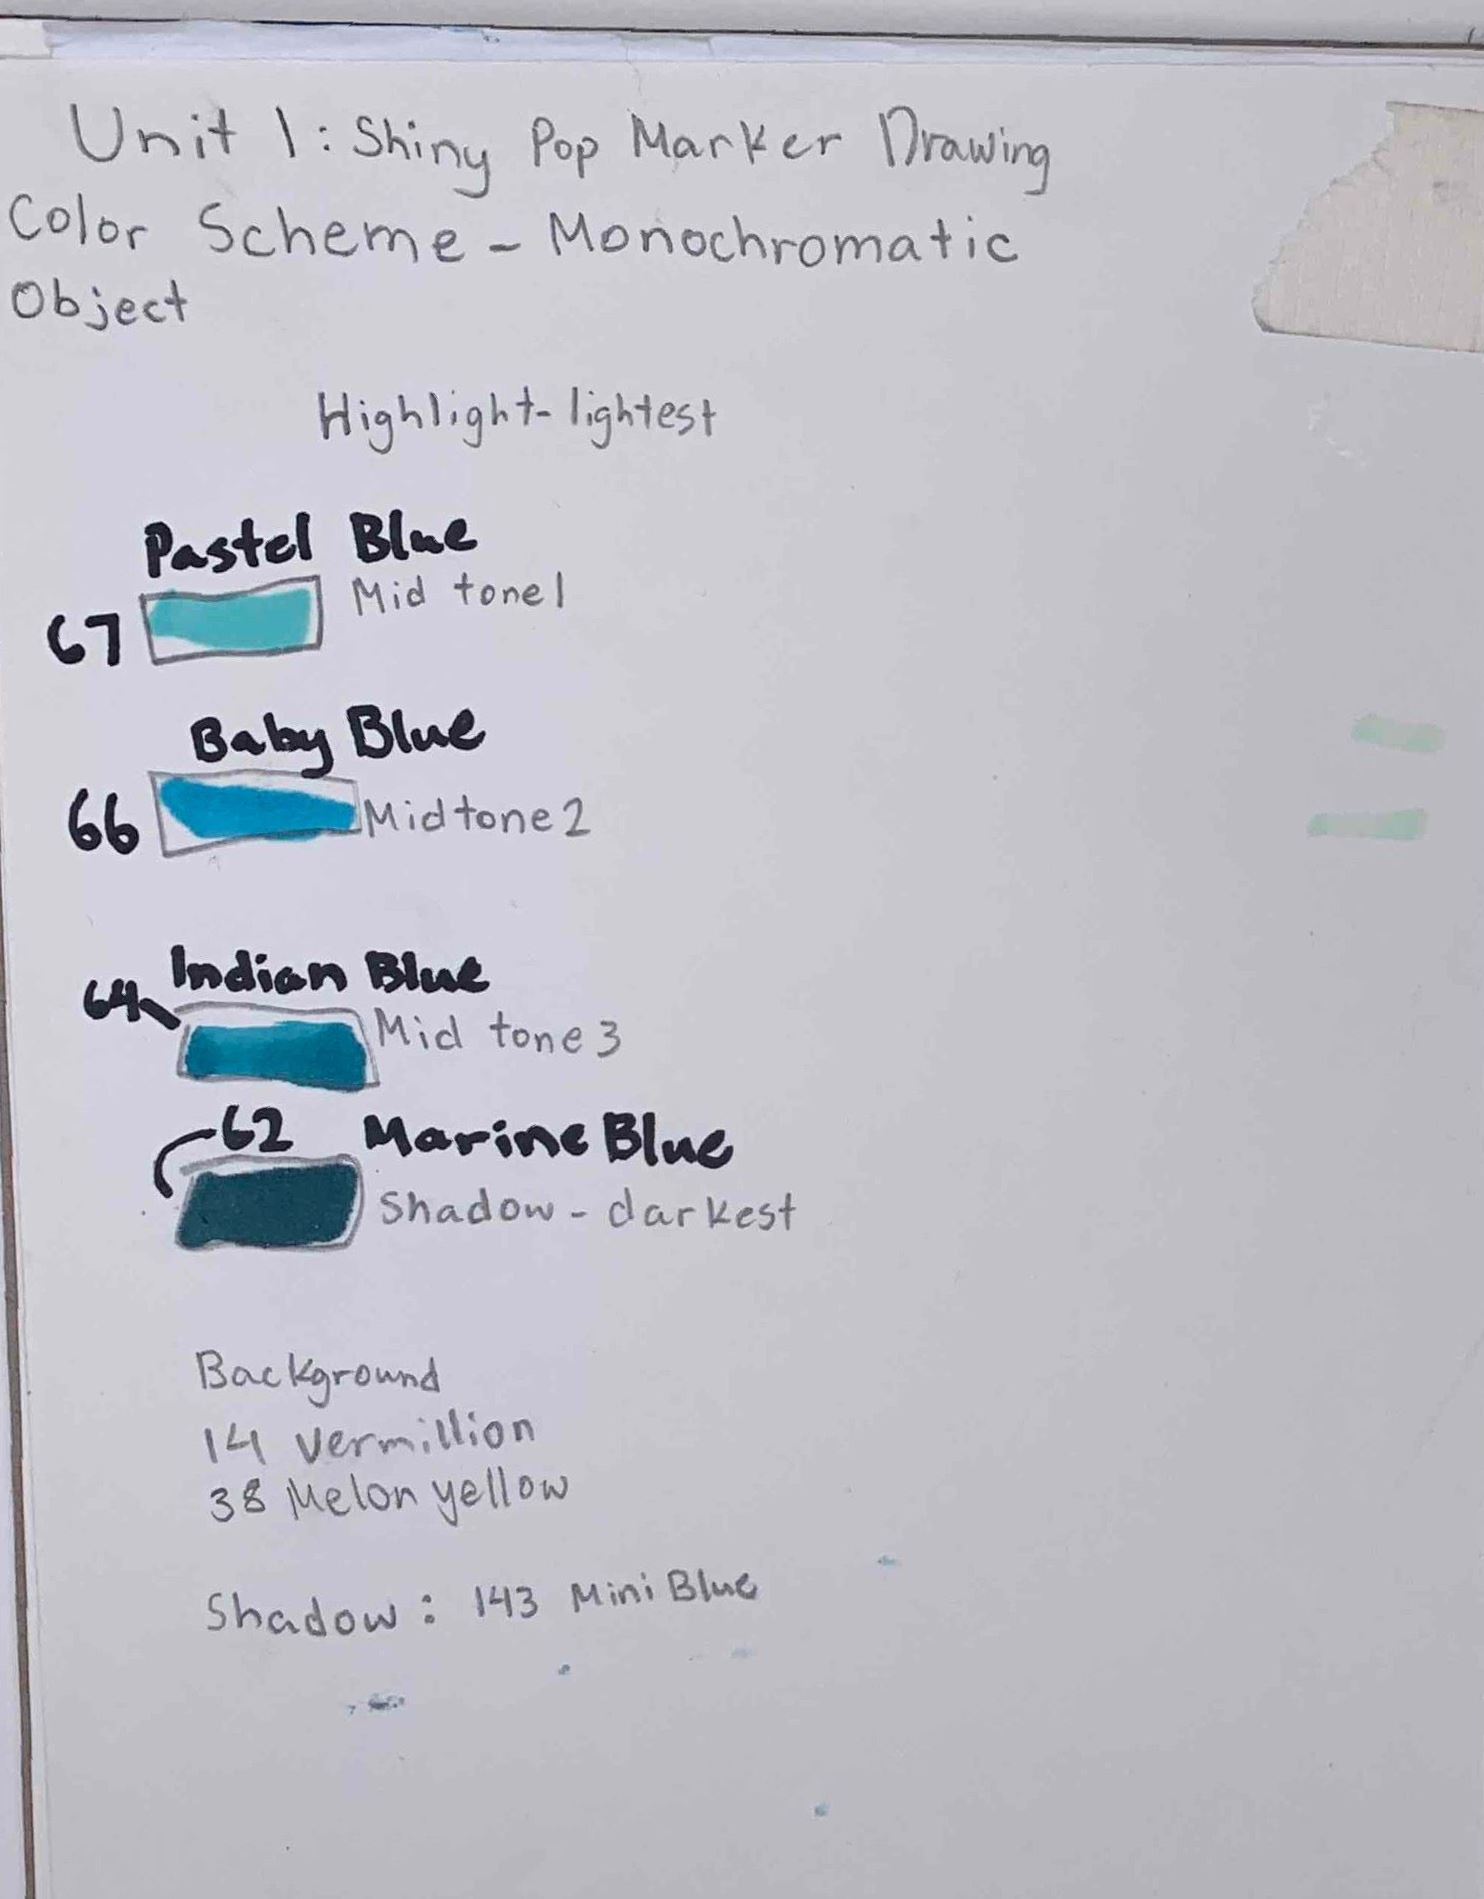 Unit 1: Shiny Pop Marker Drawing
Color Scheme - Monochromatic
Object
Highlight- lightest
Pastel Blue
Mid tone 1
67
Baby Blue
66 Midtone 2
64 Indian Blue
Mid tone 3
62 Marine Blue
Shadow - darkest
Background
14 Vermillion
38 Melon yellow
Shadow: 143 Mini Blue